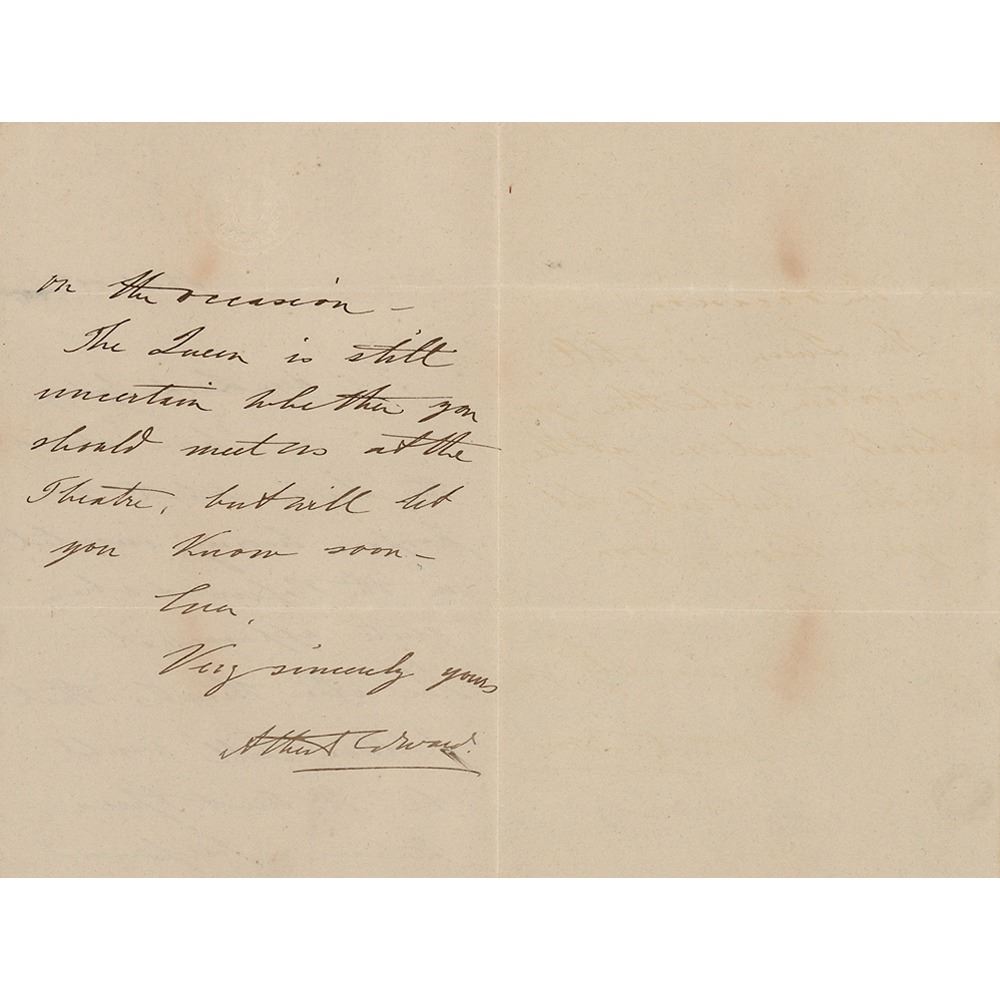 on the occasion –
The Queen is still
uncertain whether you
should meet us at the
Theatre, but will let
you know soon –
Ever,
Very sincerely yours
Albert Edward.